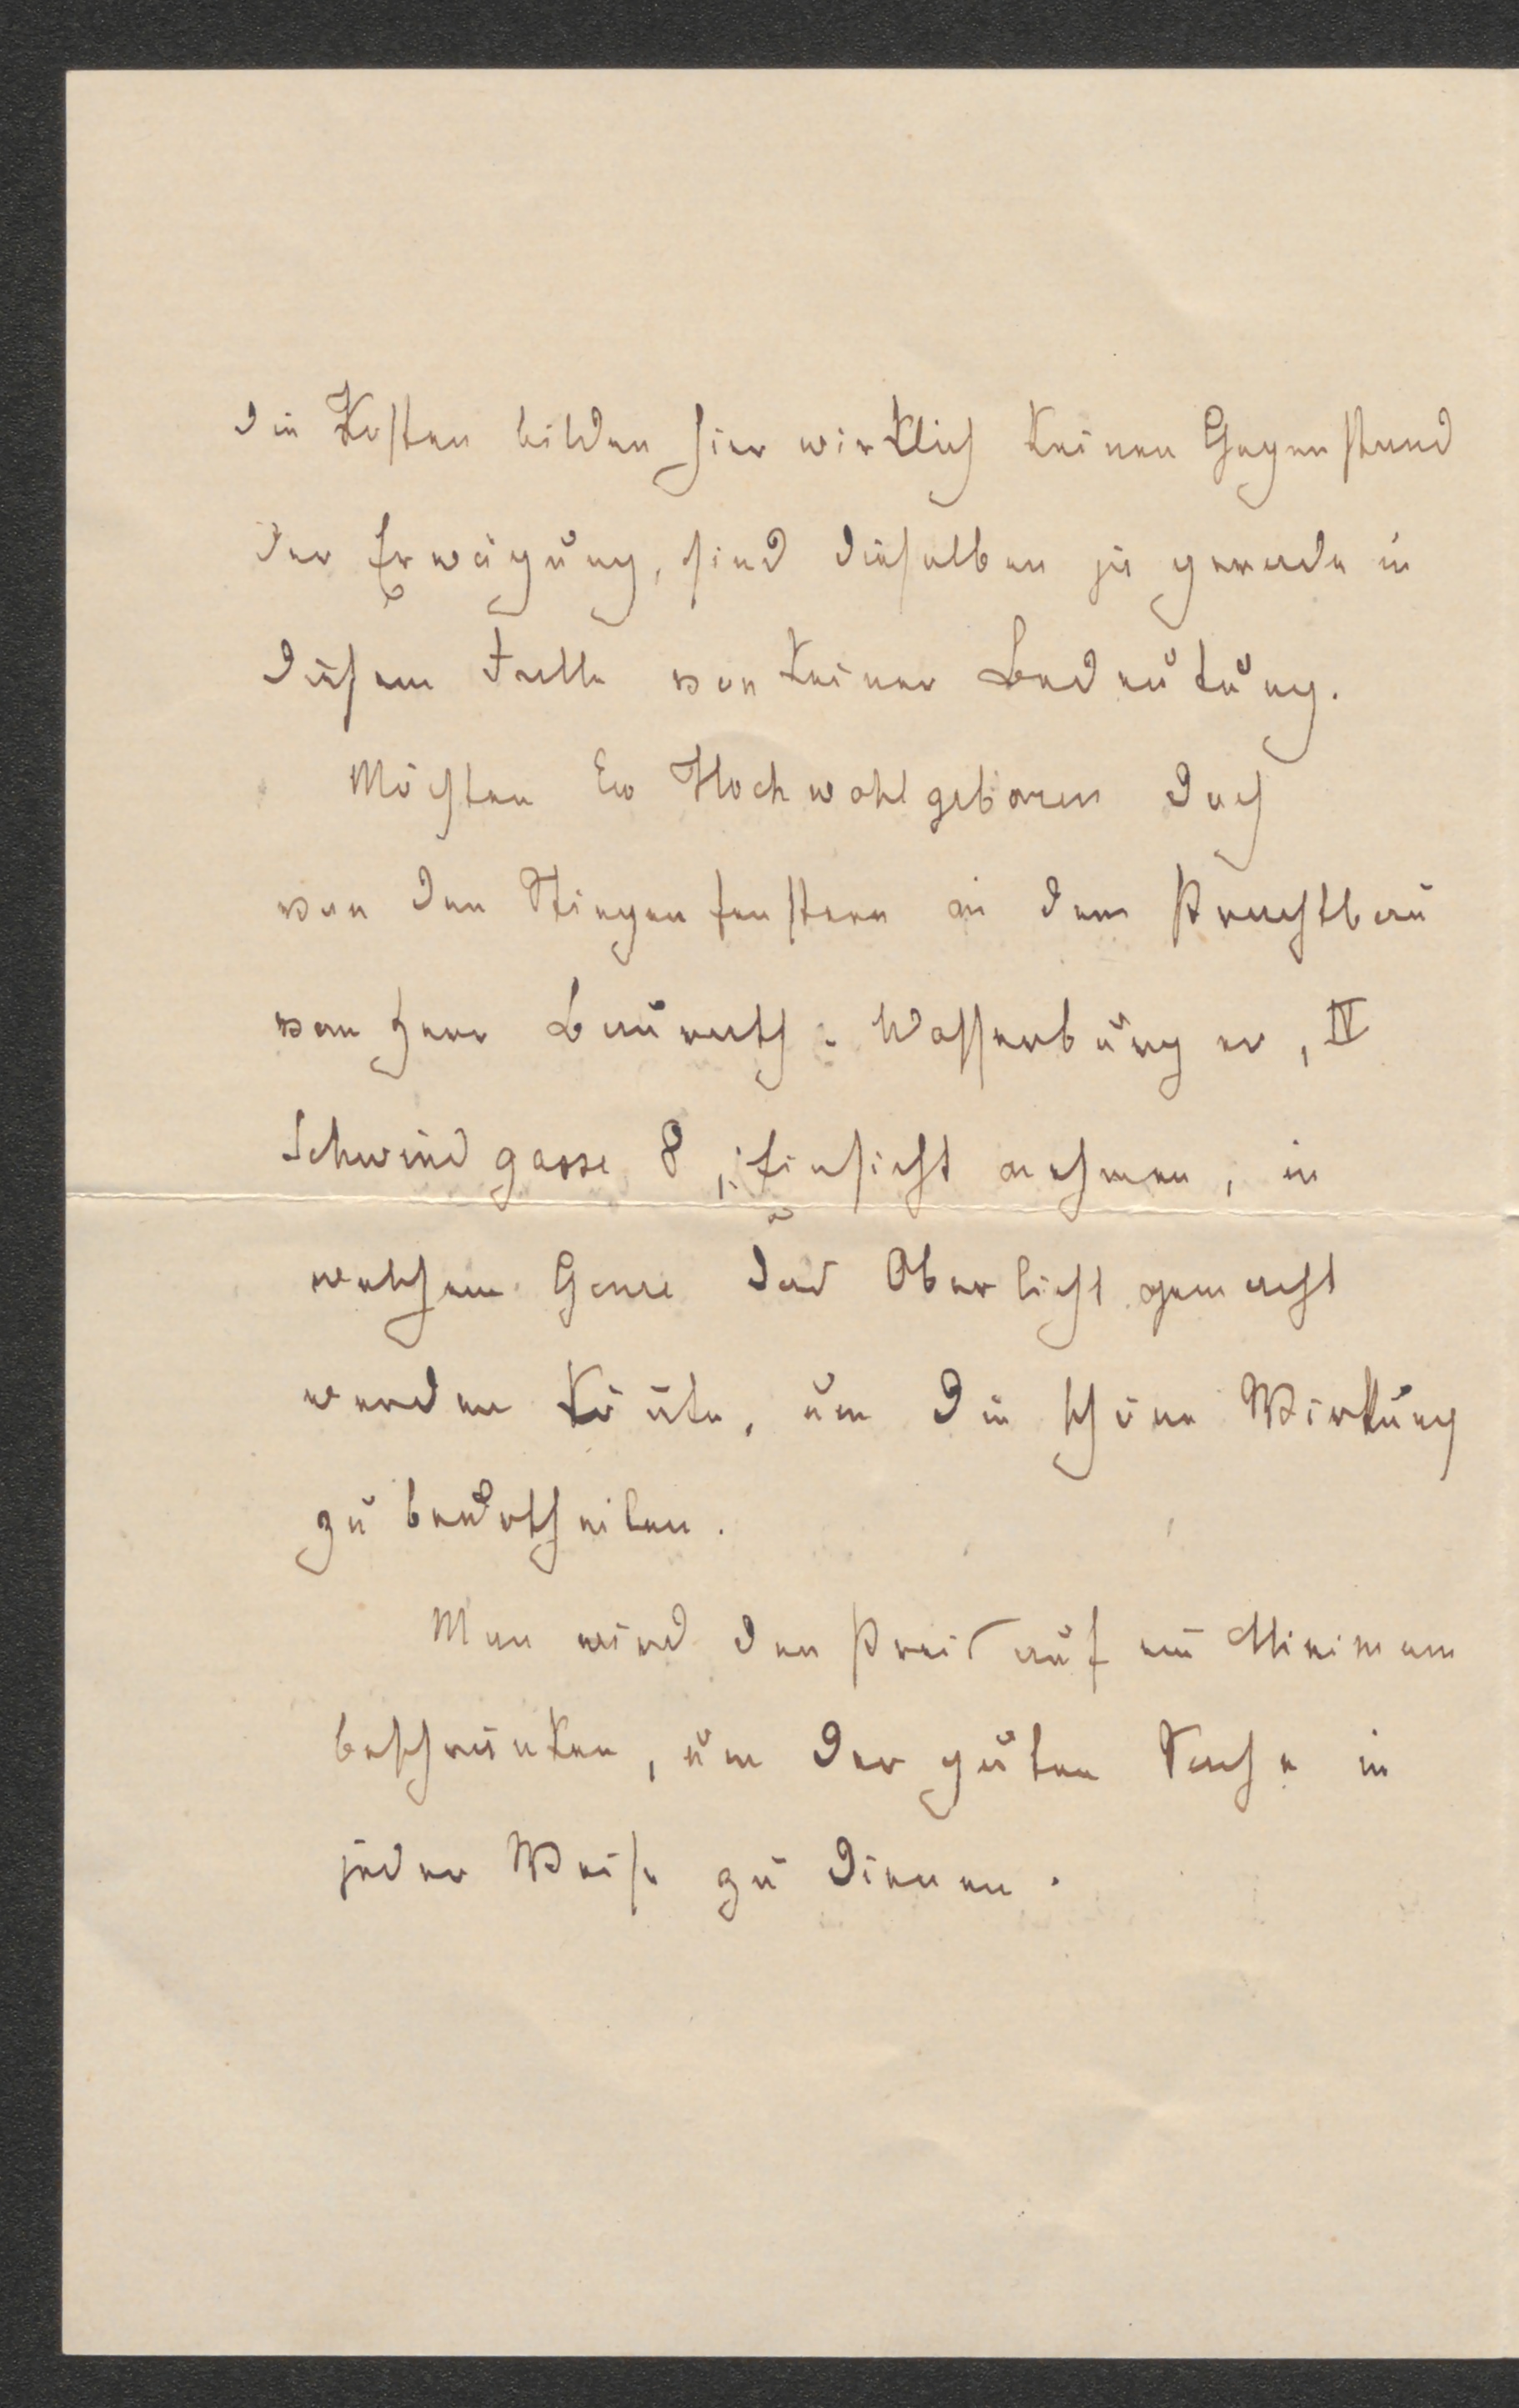 die Kosten bilden hier wirklich keinen Gegenstand
der Erwägung, sind dieselben ja gerade in
diesem Falle von keiner Bedeutung.
Möchten Ew Hochwohlgeboren doch
von den Stiegenfenstern in dem Prachtbau
von Herr Baurath: Wasserburger, IV
Schwindgasse 8, Einsicht nehmen, in
welchem Genre das Oberlicht gemacht
werden könte, um die schöne Wirkung
zu beurtheilen.
Man wird den Preis auf ein Minimum
beschränken, um der guten Sache in
jeder Weise zu dienen.